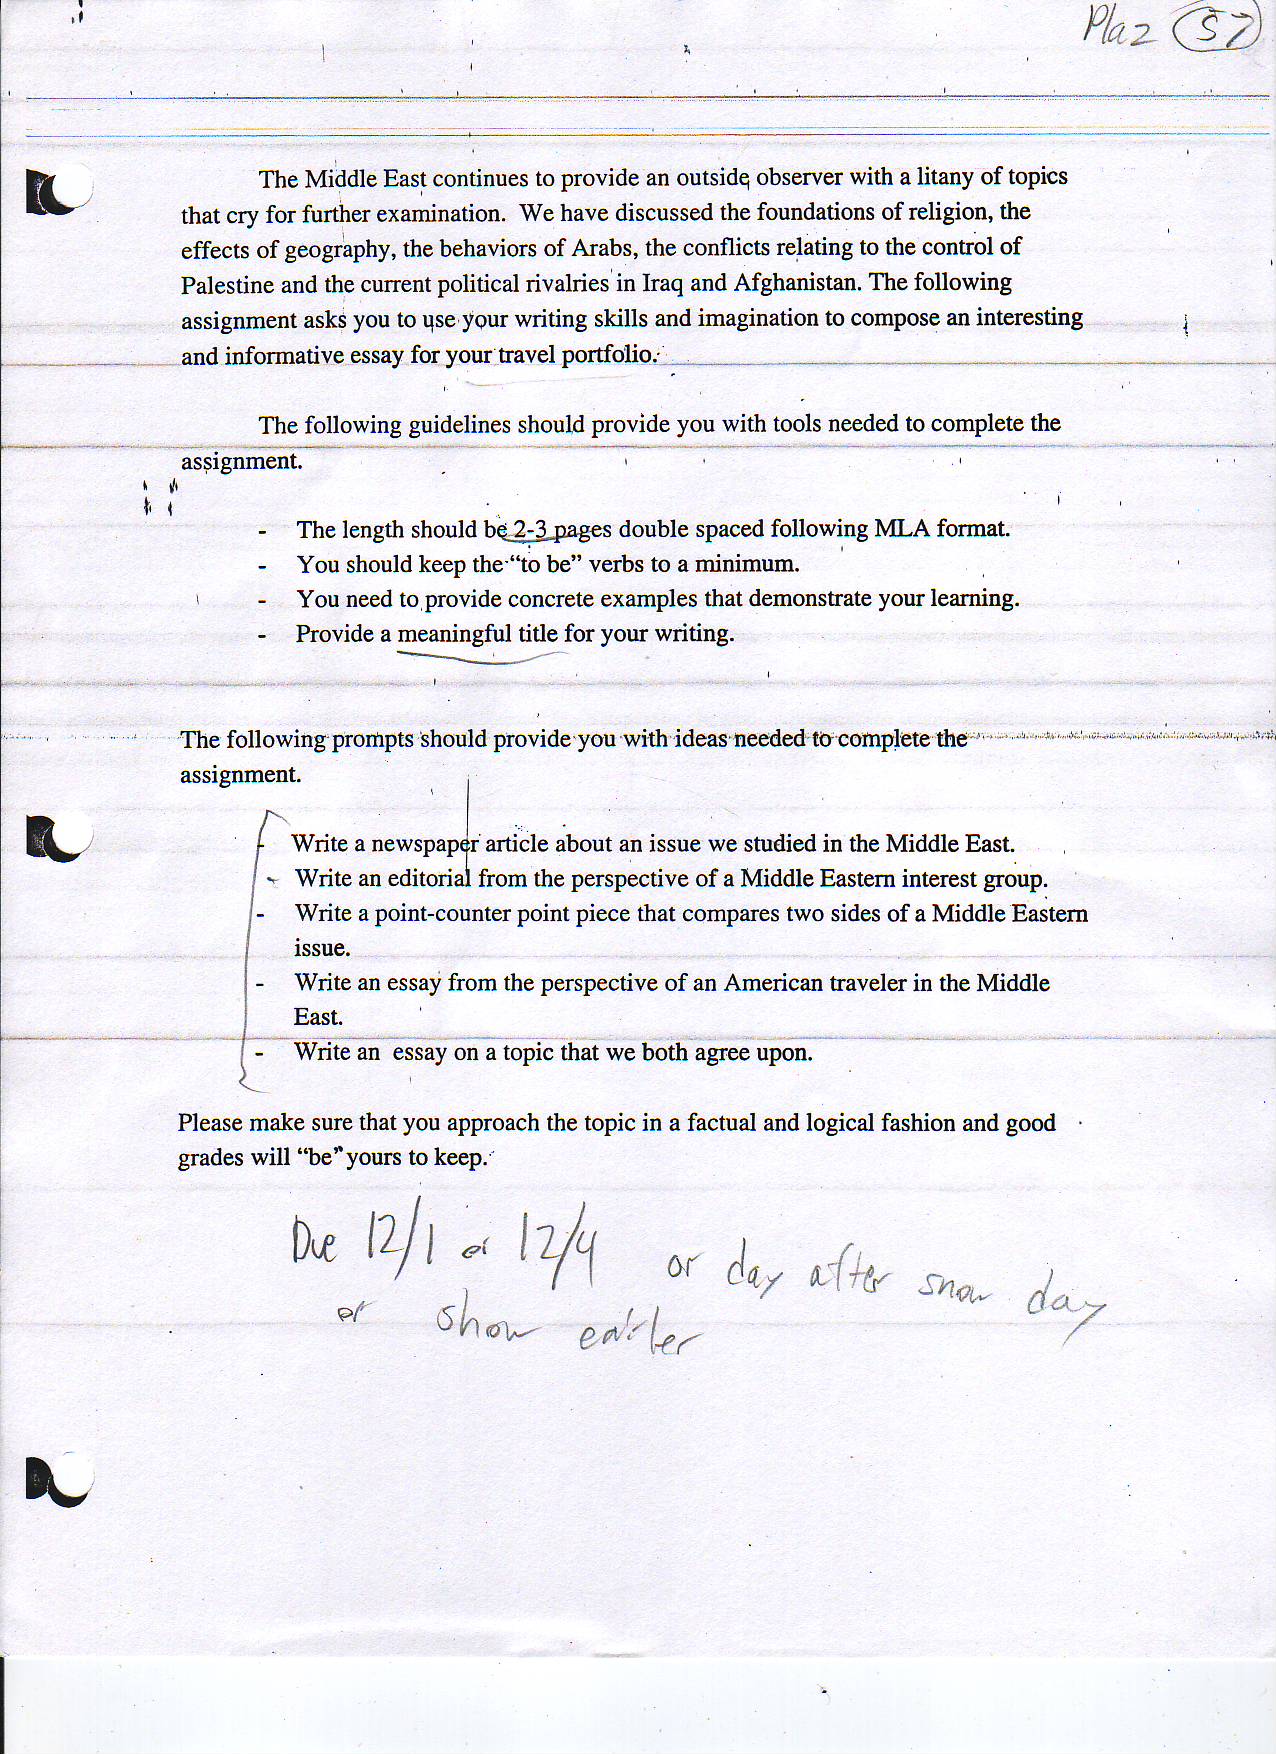 Plaz 57
The Middle East continues to provide an outside observer with a litany of topics
that cry for further examination. We have discussed the foundations of religion, the
effects of geography, the behaviors of Arabs, the conflicts relating to the control of
Palestine and the current political rivalries in Iraq and Afghanistan. The following
assignment asks you to use your writing skills and imagination to compose an interesting
and informative essay for your travel portfolio.
The following guidelines should provide you with tools needed to complete the
assignment.
- The length should be 2-3 pages double spaced following MLA format.
- You should keep the "to be" verbs to a minimum.
- You need to provide concrete examples that demonstrate your learning.
- Provide a meaningful title for your writing.
The following prompts should provide you with ideas needed to complete the
assignment.
- Write a newspaper article about an issue we studied in the Middle East.
- Write an editorial from the perspective of a Middle Eastern interest group.
- Write a point-counter point piece that compares two sides of a Middle Eastern
issue.
- Write an essay from the perspective of an American traveler in the Middle
East.
- Write an essay on a topic that we both agree upon.
Please make sure that you approach the topic in a factual and logical fashion and good
grades will "be" yours to keep.
Due 12/1 or 12/4 or day after snow day
or show earler